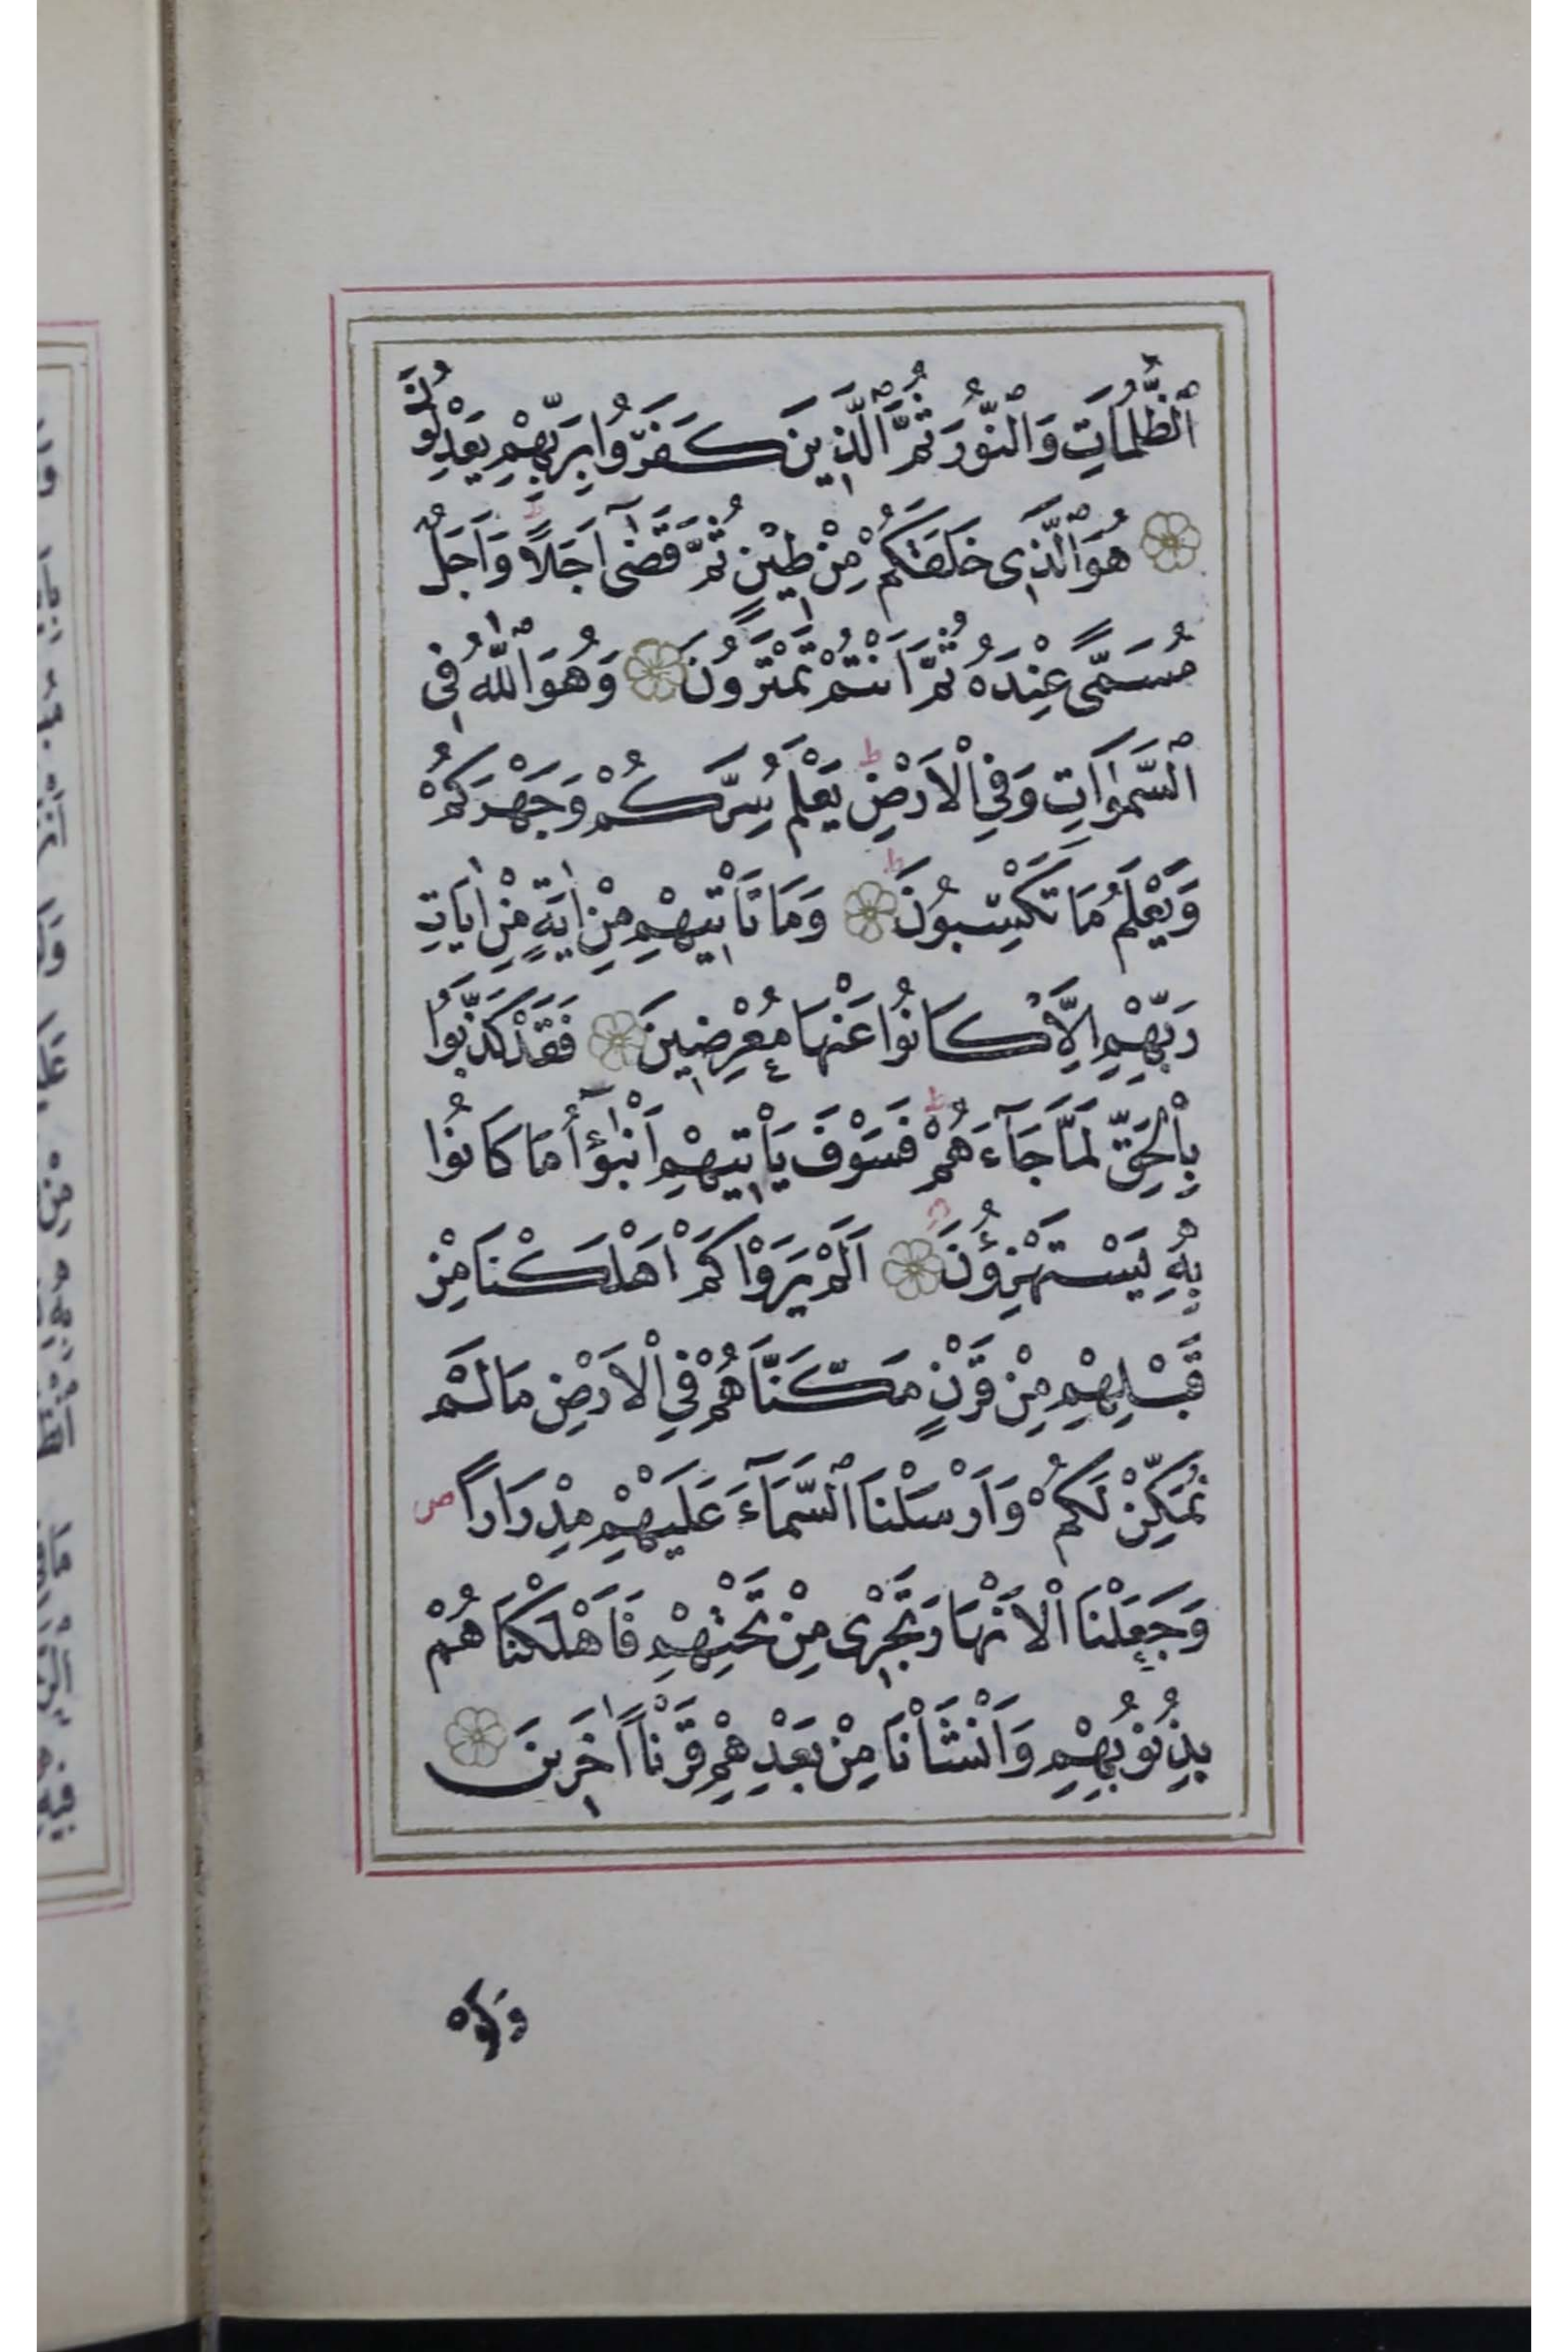 اَلظُّلُمَاتِ وَالنُّورَ ثُمَّ الَّذِينَ كَفَرُوا بِرَبِّهِمْ يَعْدِلُونَ
هُوَ الَّذِى خَلَقَكُمْ مِنْ طِينٍ ثُمَّ قَضٰٓى اَجَلًا ط وَاَجَلٌ
مُسَمًّى عِنْدَهُ ثُمَّ اَنْتُمْ تَمْتَرُونَ وَهُوَ اللّٰهُ فِى
السَّمٰوَاتِ وَفِى الْاَرْضِ ط يَعْلَمُ سِرَّكُمْ وَجَهْرَكُمْ
وَيَعْلَمُ مَا تَكْسِبُونَ ط وَمَا تَأْتِيهِمْ مِنْ اٰيَةٍ مِنْ اٰيَاتِ
رَبِّهِمْ اِلَّا كَانُوا عَنْهَا مُعْرِضِينَ فَقَدْ كَذَّبُوا
بِالْحَقِّ لَمَّا جَآءَهُمْ ط فَسَوْفَ يَأْتِيهِمْ اَنْبٰٓؤُا مَا كَانُوا
بِهِ يَسْتَهْزِؤُنَ اَلَمْ يَرَوْا كَمْ اَهْلَكْنَا مِنْ
قَبْلِهِمْ مِنْ قَرْنٍ مَكَّنَّاهُمْ فِى الْاَرْضِ مَا لَمْ
نُمَكِّنْ لَكُمْ وَاَرْسَلْنَا السَّمَآءَ عَلَيْهِمْ مِدْرَارًا ص
وَجَعَلْنَا الْاَنْهَارَ تَجْرِى مِنْ تَحْتِهِمْ فَاَهْلَكْنَاهُمْ
بِذُنُوبِهِمْ وَاَنْشَأْنَا مِنْ بَعْدِهِمْ قَرْنًا اٰخَرِينَ
وَلَوْ